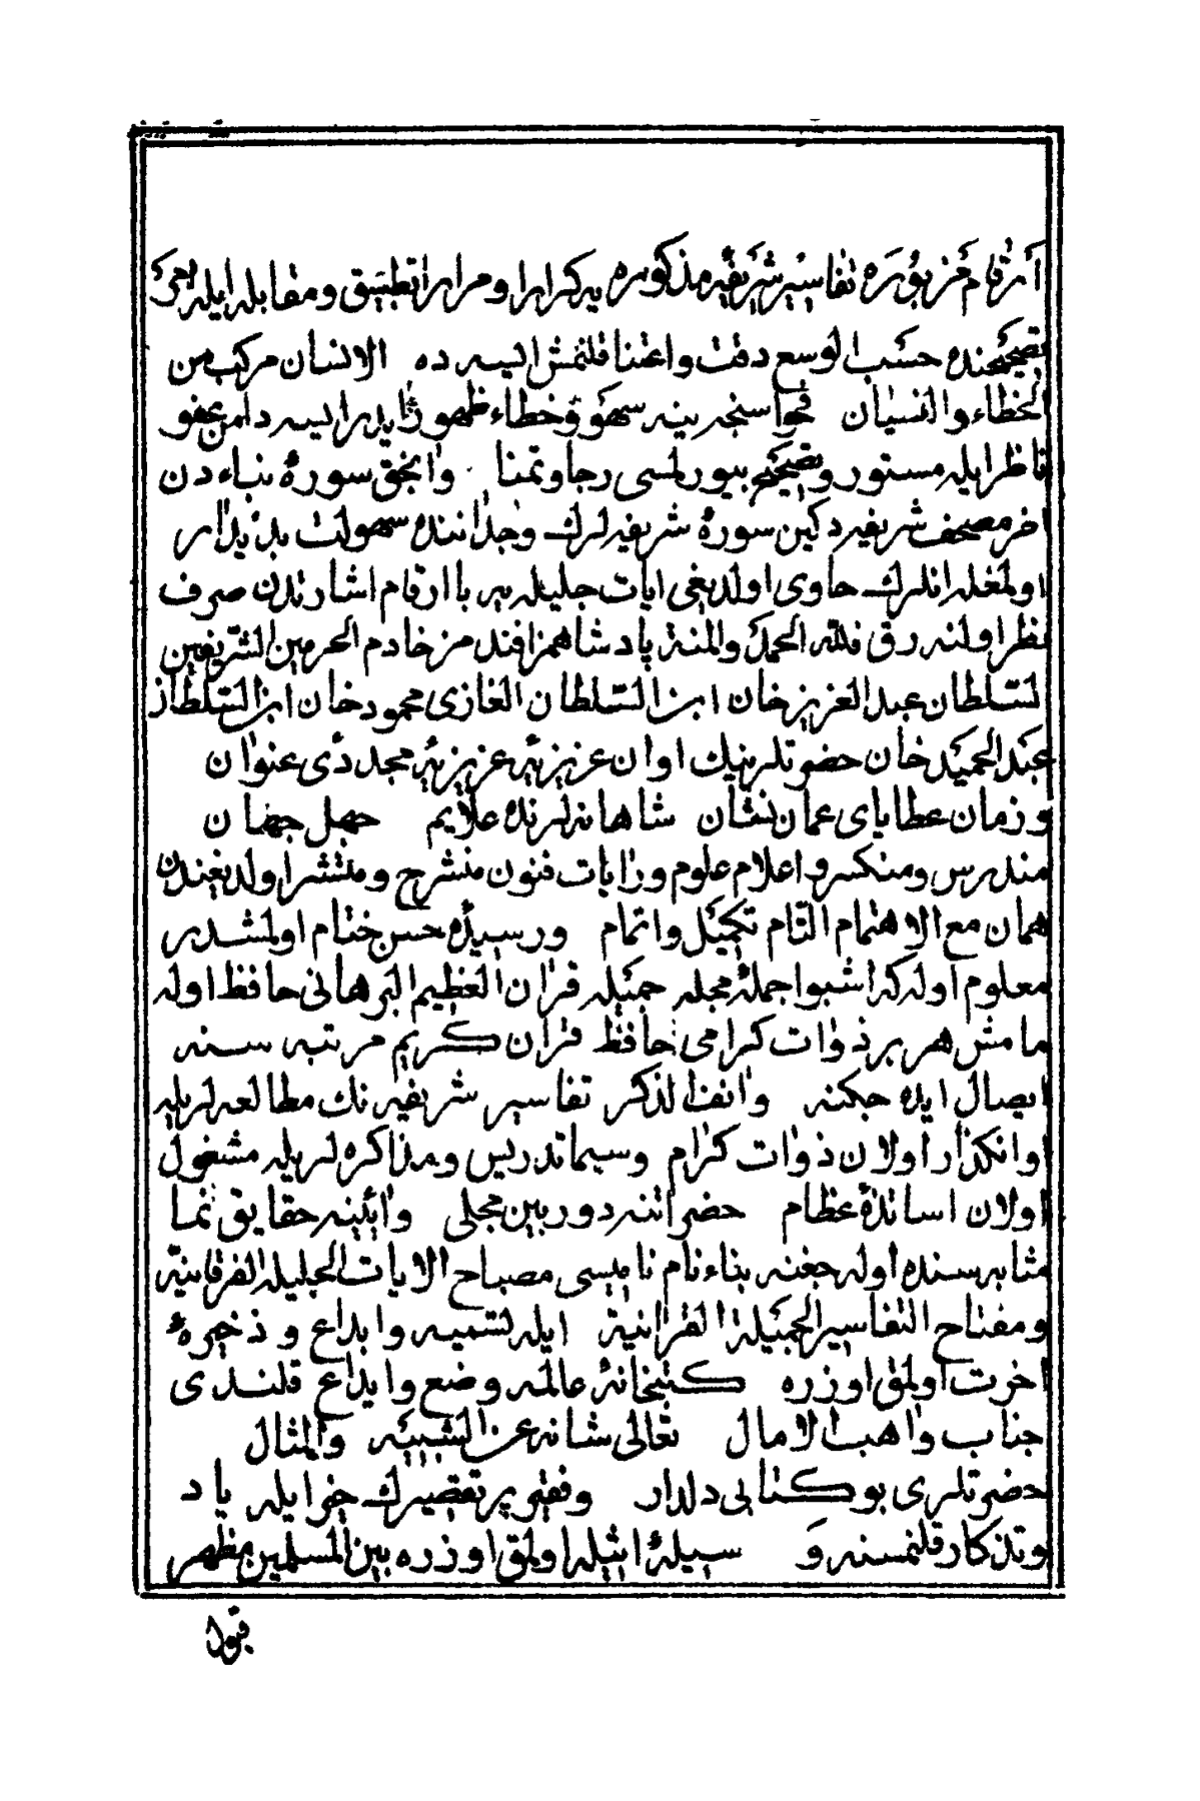 ارقام مزبوره تفاسیر شریفه مذکوره یه کرارا و مرارا تطبیق و مقابله ایله امر
تصحیحنده حسب الوسع دقت واعتنا قلنمش ایسه ده الانسان مرکب من
الخطاء والنسیان فحواسنجه ینه سهو و خطاء ظهور ایدر ایسه دامن عفو
ناظر ایله مستور و تصحیحی بیورلمسی رجا و تمنا وانجق سورهٔ نباء دن
اخر مصحف شریفه دکین سورهٔ شریفه لرك وجداننده سهولت بدیدار
اولمغله انلرك حاوی اولدیغی ایات جلیله یه با ارقام اشارتدن صرف
نظر اولنه رق فلله الحمد والمنة پادشاهمز افندمز خادم الحرمین الشریفین
السلطان عبد العزیز خان ابن السلطان الغازی محمود خان ابن السلطان
عبد الحمید خان حضرتلرینك اوان عزیزیهٔ عزیزیهٔ مجددئ عنوان
و زمان عطایای عمان نشان شاهانه لرنده علایم جهل جهان
مندرس و منکسر و اعلام علوم و رایات فنون منشرح و منتشر اولدیغندن
همان مع الاهتمام التام تکمیل و اتمام و رسیدهٔ حسن ختام اولمشدر
معلوم اوله که اشبو اجملهٔ مجله جمیله قران العظیم البرهانی حافظ اوله
مامش هر بر ذوات کرامی حافظ قران کریم مرتبه سنه
ایصال ایده جکنه وانفا الذکر تفاسیر شریفه نك مطالعه لریله
اوانکذار اولان ذوات کرام وسیما تدریس و مذاکره لریله مشغول
اولان اساتذهٔ عظام حضراتنه دوربین مجلی وآیینه حقایق نما
مثابه سنده اوله جغنه بناء نام نامیسی مصباح الایات الجلیلة الفرقانیة
و مفتاح التفاسیر الجمیلة القرانیة ایله تسمیه وابداع و ذخیرهٔ
اخرت اولمق اوزره کتبخانهٔ عالمه وضع وایداع قلندی
جناب واهب الامال تعالی شانه عن الشبیه والمثال
حضرتلری بو کتابی دلدار وفقیر پر تقصیرك خیر ایله یاد
وتذکار قلنمسنه و سیلهٔ اثیله اولمق اوزره بین المسلمین مظهر
قبول